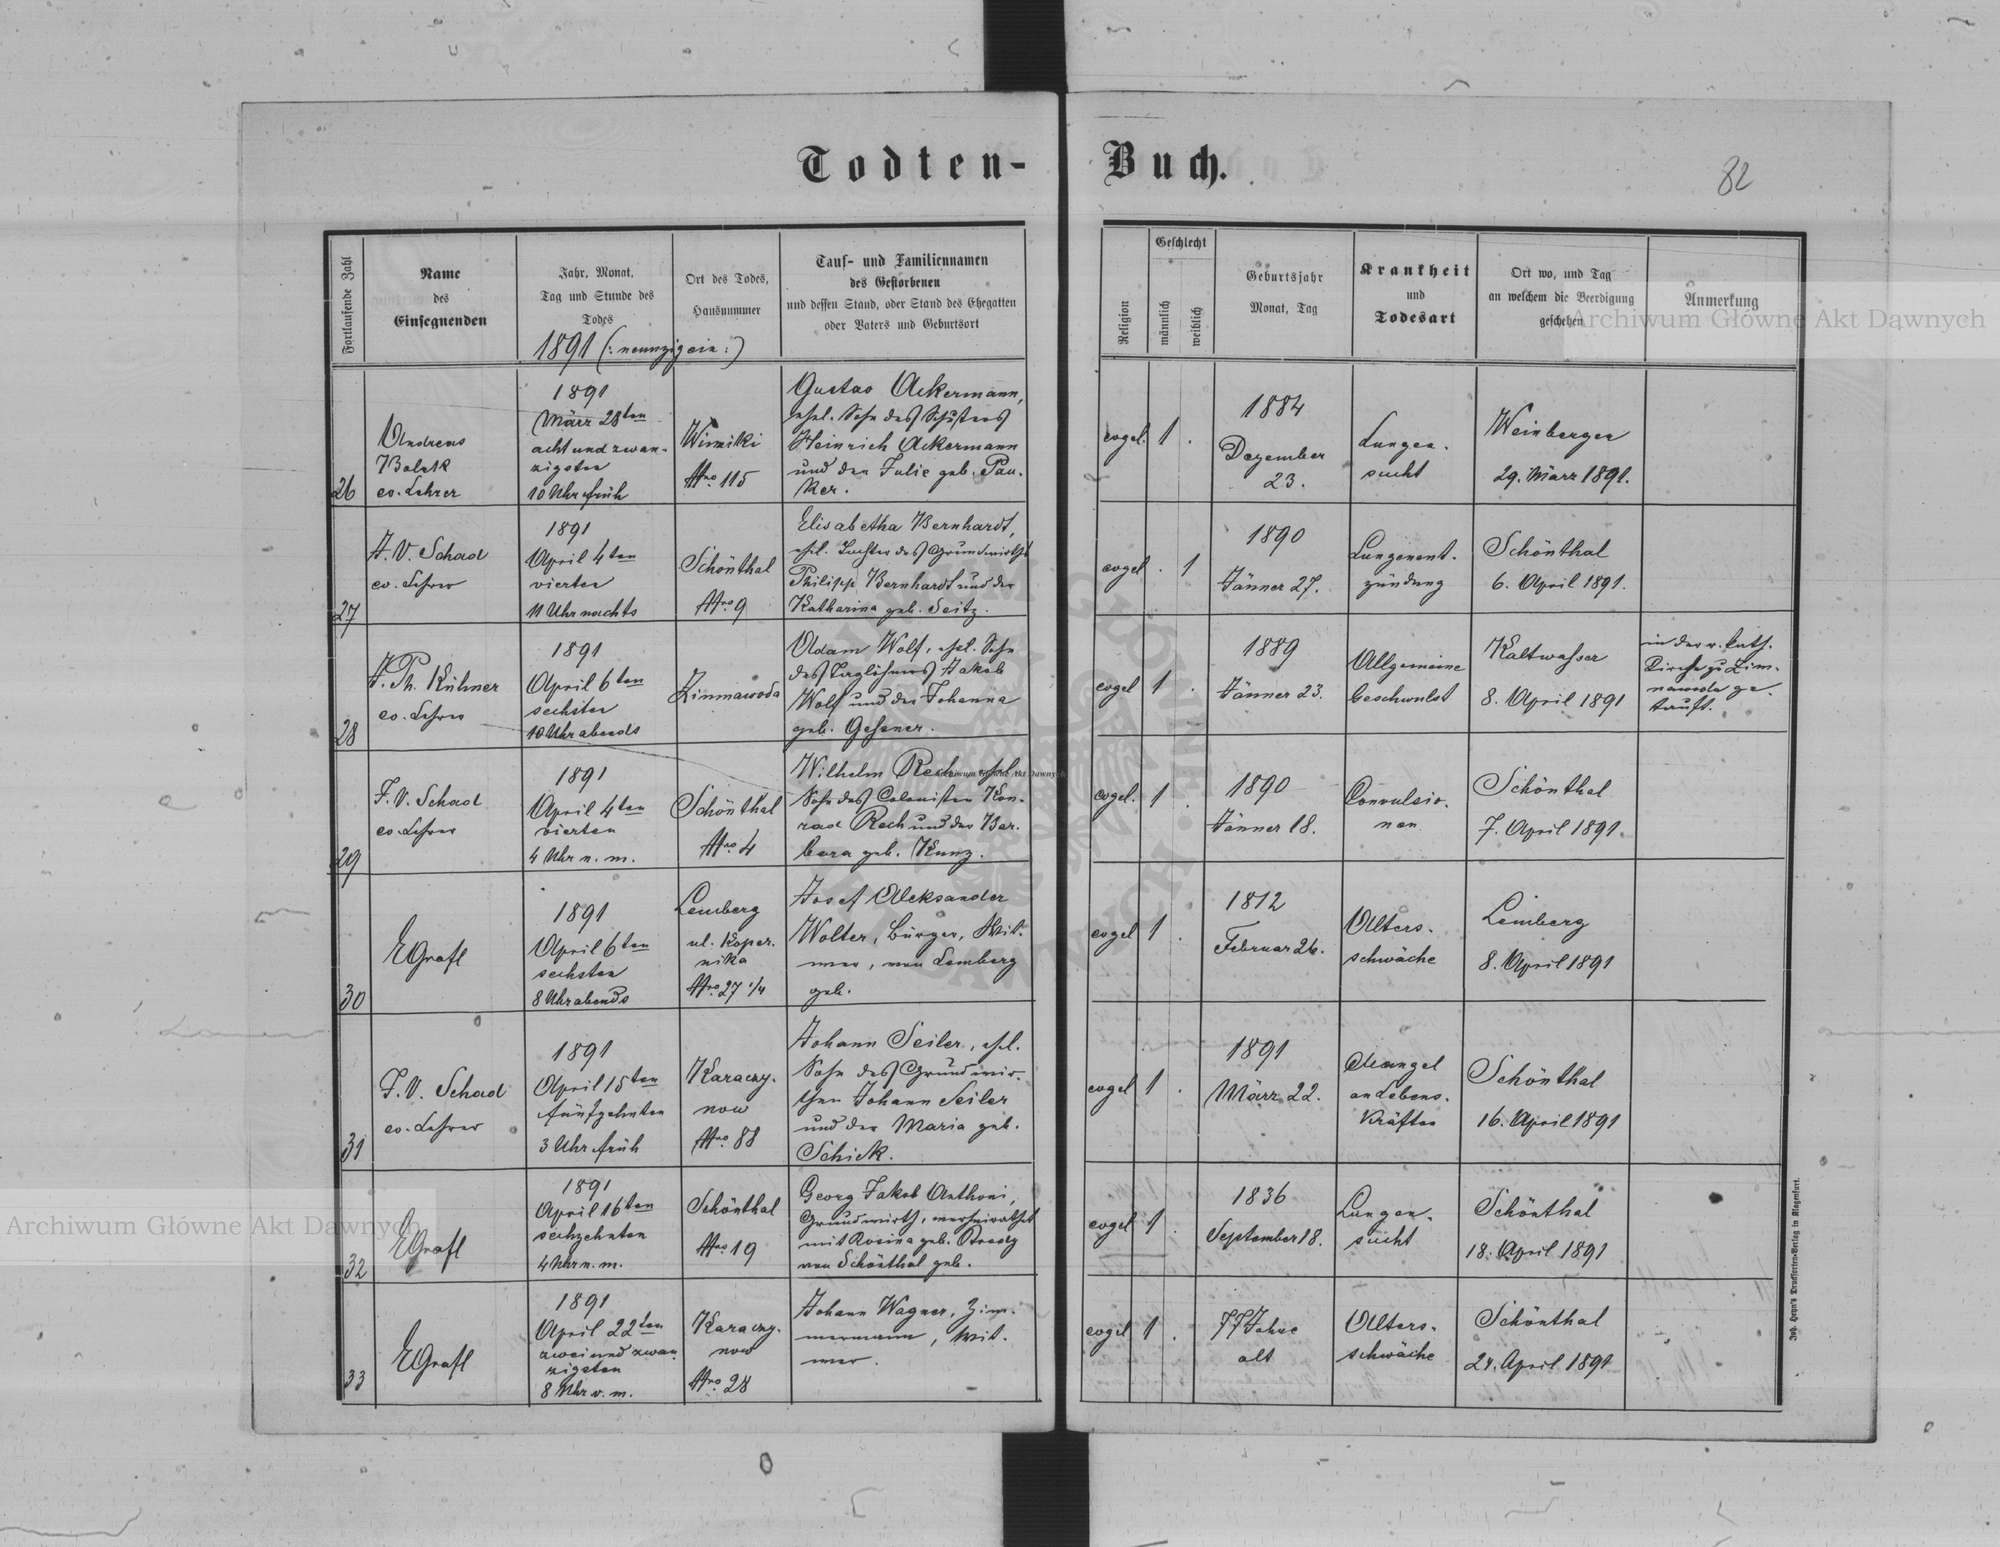 Todten-Buch.
82
Fortlaufende Zahl
Name
des
Einsegnenden
Jahr, Monat,
Tag und Stunde des
Todes
1891 (: neunzigein :)
Ort des Todes,
Hausnummer
Tauf- und Familiennamen
des Gestorbenen
und dessen Stand, oder Stand des Ehegatten
oder Vaters und Geburtsort
Religion
Geschlecht
männlich
weiblich
Geburtsjahr
Monat, Tag
Krankheit
und
Todesart
Ort wo, und Tag
an welchem die Beerdigung
geschehen
Anmerkung
Archiwum Główne Akt Dawnych
26
Andreas
Bolek
ev. Lehrer
1891
März 28ten
acht und zwan-
zigsten
10 Uhr früh
Winniki
Nro 115
Gustav Ackermann,
ehel. Sohn des Schusters
Heinrich Ackermann
und der Julie geb. Pau-
ker.
evgel.
1 .
1884
Dezember
23.
Lungen-
sucht
Weinbergen
29. März 1891.
27
J. V. Schad
ev. Lehrer
1891
April 4ten
vierten
11 Uhr nachts
Schönthal
Nro 9
Elisabetha Bernhardt,
ehel. Tochter des Grundwirths
Philipp Bernhardt und der
Katharina geb. Seitz.
evgel
. 1
1890
Jänner 27.
Lungenent-
zündung
Schönthal
6. April 1891.
28
J. Ph. Kühner
ev. Lehrer
1891
April 6ten
sechsten
10 Uhr abends
Zimnawoda
Adam Wolf, ehel. Sohn
des Taglöhners Jakob
Wolf und der Johanna
geb. Gesener.
evgel
1 .
1889
Jänner 23.
Allgemeine
Geschwulst
Kaltwasser
8. April 1891
in der r. kath.
Kirche zu Zim-
nawoda ge-
tauft.
29
J. V. Schad
ev. Lehrer
1891
April 4ten
vierten
4 Uhr n. m.
Schönthal
Nro 4
Wilhelm Rech, ehel.
Sohn des Colonisten Kon-
rad Rech und der Bar-
bara geb. Kunz.
Archiwum Główne Akt Dawnych
evgel.
1 .
1890
Jänner 18.
Convulsio-
nen
Schönthal
7. April 1891.
30
EGrafl
1891
April 6ten
sechsten
8 Uhr abends
Lemberg
ul. Koper-
nika
Nro 27 1/4
Josef Aleksander
Wolter, Bürger, Wit-
wer, von Lemberg
geb.
evgel
1 .
1812
Februar 26.
Alters-
schwäche
Lemberg
8. April 1891
31
J. V. Schad
ev. Lehrer
1891
April 15ten
fünfzehnten
3 Uhr früh
Karaczy-
now
Nro 88
Johann Seiler, ehel.
Sohn des Grundwir-
then Johann Seiler
und der Maria geb.
Schick.
evgel
1 .
1891
März 22.
Mangel
an Lebens-
kräften
Schönthal
16. April 1891
32
EGrafl
1891
April 16ten
sechzehnten
4 Uhr n. m.
Schönthal
Nro 19
Georg Jakob Anthoni,
Grundwirth, verheirathet
mit Rosina geb.
von Schönthal geb.
evgel
1 .
1836
September 18.
Lungen-
sucht
Schönthal
18. April 1891
33
EGrafl
1891
April 22ten
zwei und zwan-
zigsten
8 Uhr v. m.
Karaczy-
now
Nro 28
Johann Wagner, Zim-
mermann, Wit-
wer.
evgel
1 .
77 Jahre
alt
Alters-
schwäche
Schönthal
24. April 1891
Archiwum Główne Akt Dawnych
Joh. Heyn's Drucksorten-Verlag in Klagenfurt.